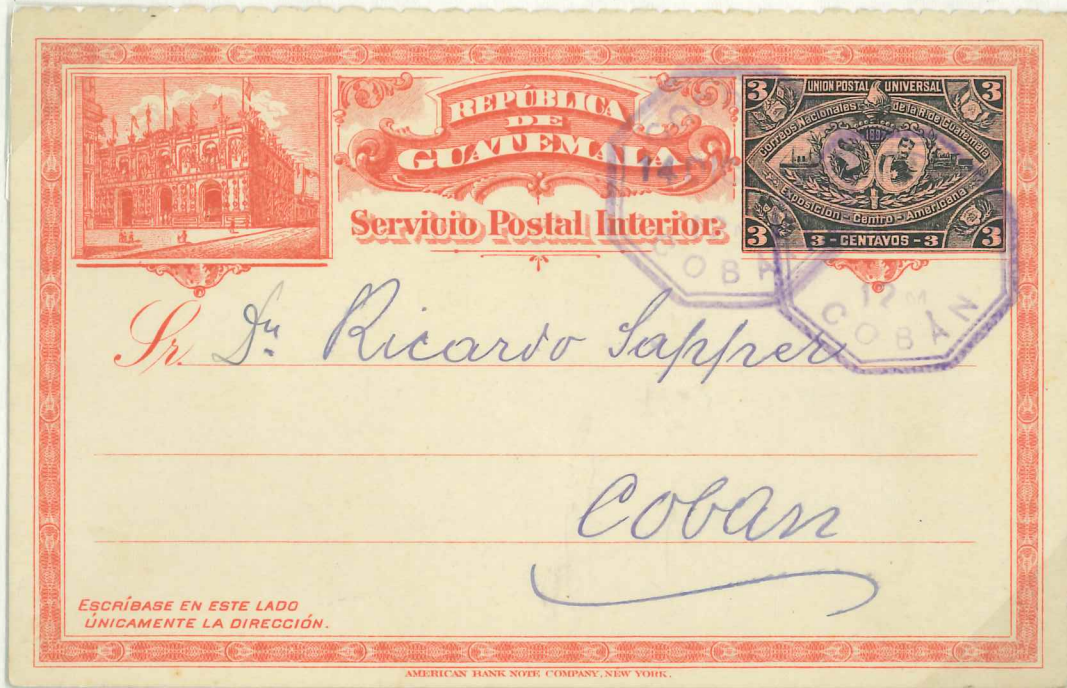 REPÚBLICA
DE
GUATEMALA
Servicio Postal Interior.
3 UNION POSTAL UNIVERSAL 3
Correos Nacionales de la R. de Guatemala
1897
Exposición - Centro - Americana
3 3 - CENTAVOS - 3 3
14
COBÁ
12 M
COBÁN
Sr. Dn. Ricardo Sapper
Coban
ESCRÍBASE EN ESTE LADO
ÚNICAMENTE LA DIRECCIÓN.
AMERICAN BANK NOTE COMPANY, NEW YORK.